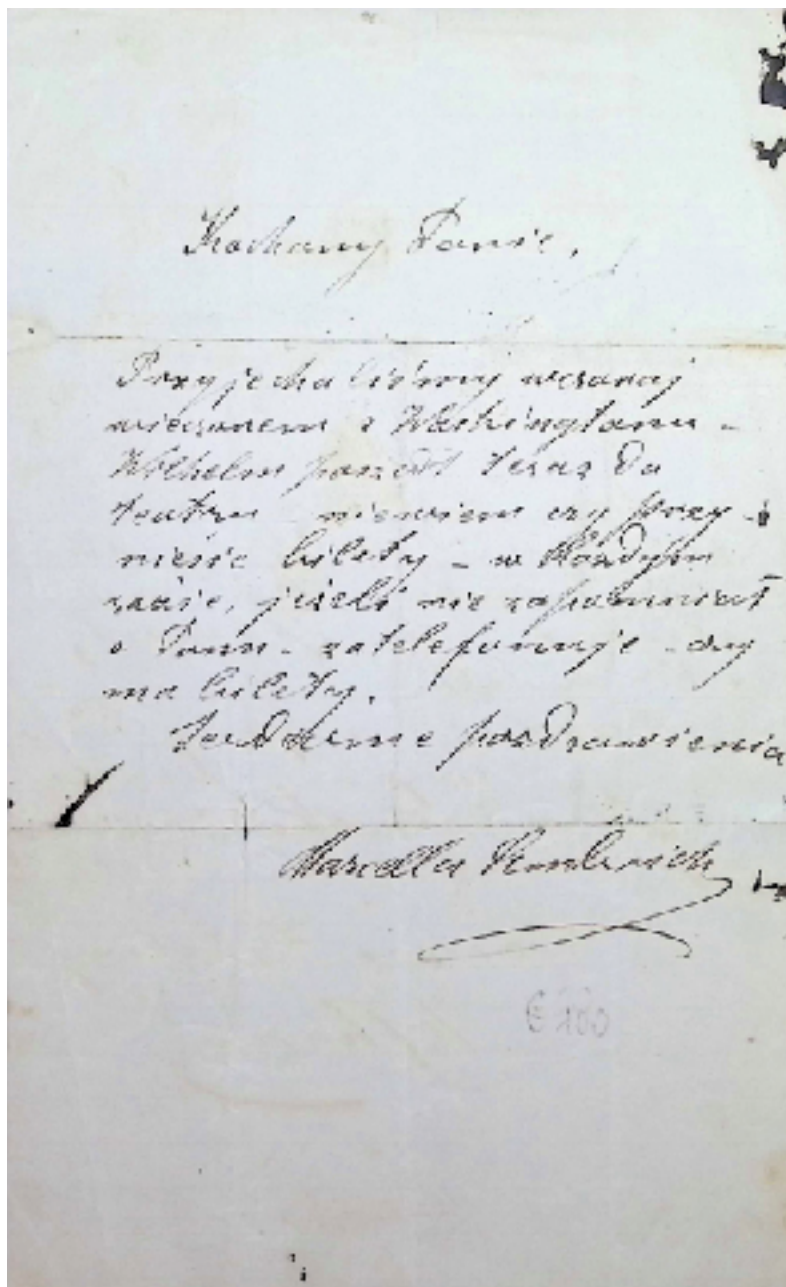 Kochany Panie,
Przyjechaliśmy wczoraj
wieczorem z Washingtonu -
Wilhelm poszedł teraz do
teatru niewiem czy przy -
niesie bilety - w każdym
razie, jeżeli nie zapomniał
o Panu - zatelefonuje - czy
ma bilety.
Serdeczne pozdrowienia
Marcella Sembrich
€ 180